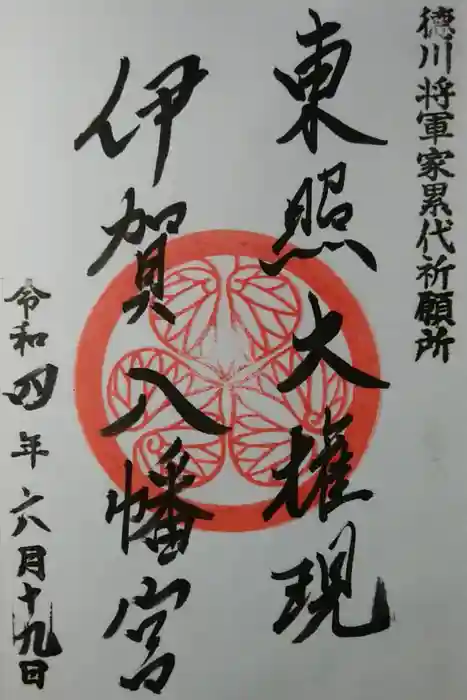 徳川将軍家累代祈願所
東照大権現
伊賀八幡宮
令和四年六月十九日